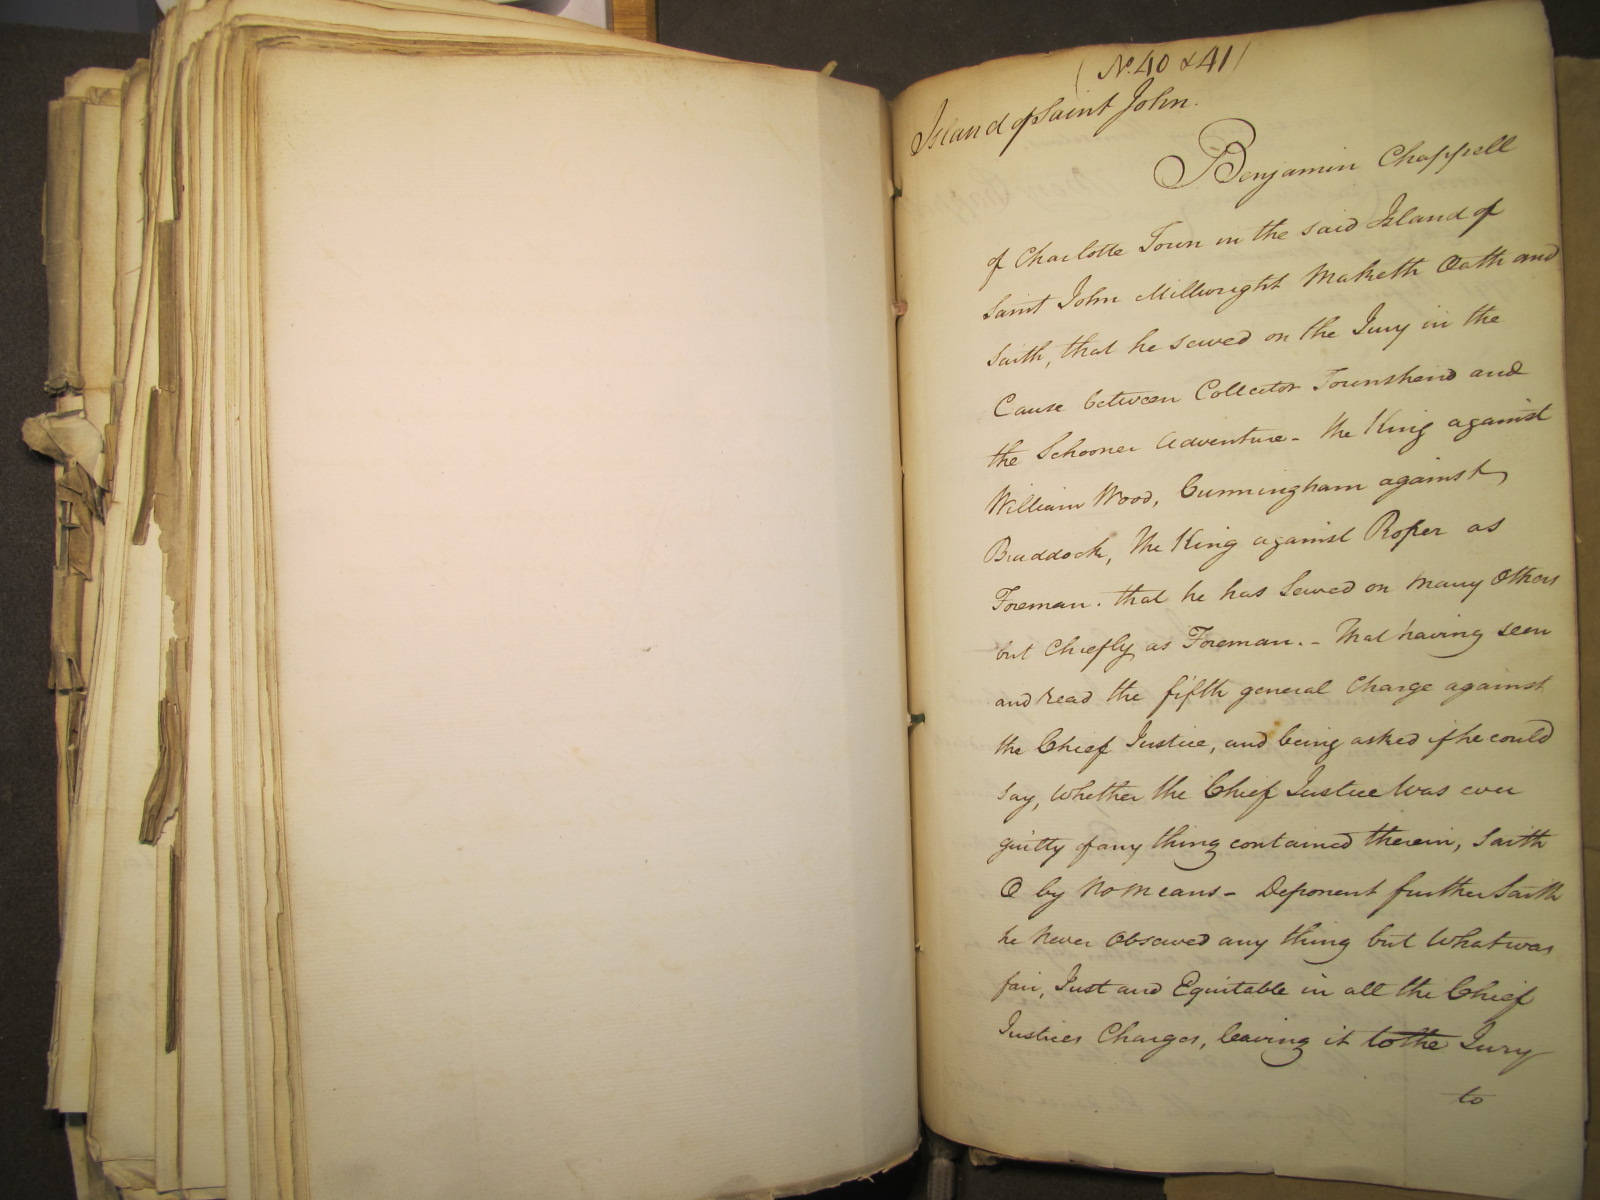 (No. 40 & 41)
Island of Saint John.
Benjamin Chappell
of Charlotte Town in the said Island of
Saint John Millwright Maketh Oath and
Saith, that he served on the Jury in the
Cause between Collector Townshend and
the Schooner Adventure - the King against
William Wood, Cunningham against
Braddock, the King against Roper as
Foreman. that he has Served on many Others
but Chiefly as Foreman. - That having seen
and read the fifth general Charge against
the Chief Justice, and being asked if he could
say, Whether the Chief Justice Was ever
guilty of any thing contained therein, Saith
O by No Means - Deponent further Saith
he Never Observed any thing but What was
fair, Just and Equitable in all the Chief
Justices Charges, leaving it to the Jury
to